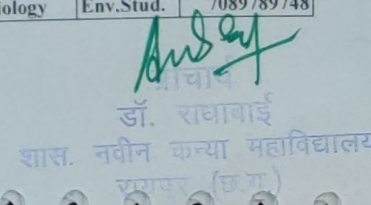 iology Env.Stud. 7089789748
प्राचार्य
डॉ. राधाबाई
शास. नवीन कन्या महाविद्यालय
रायपुर (छ.ग.)